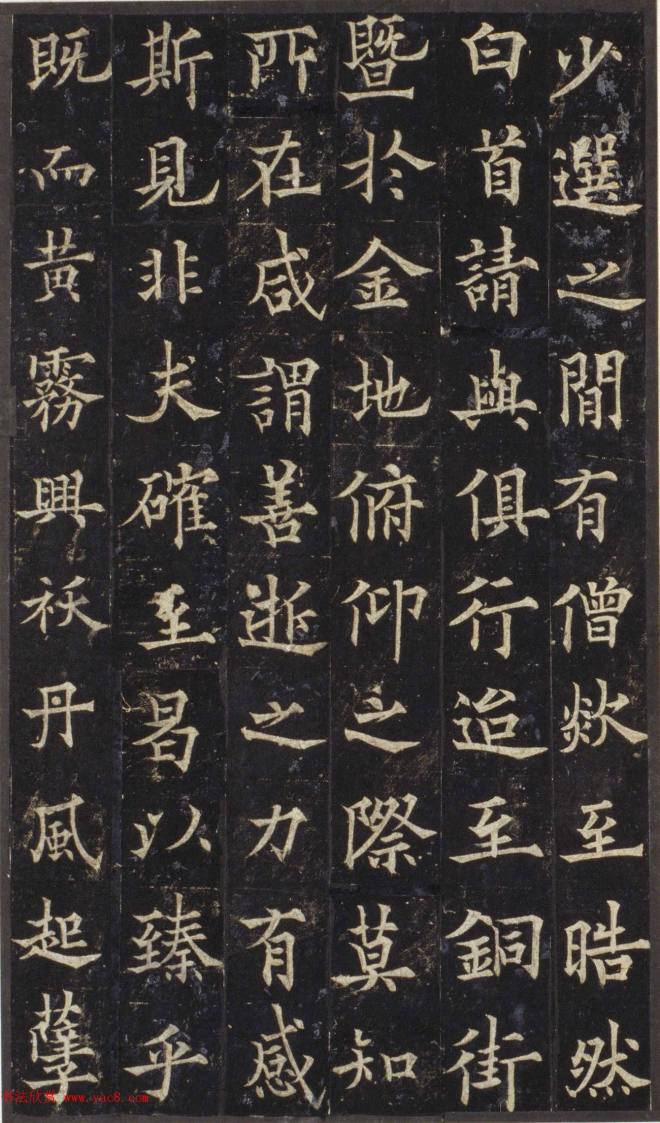 少選之間有僧欻至皓然
白首請與俱行迨至銅街
暨於金地俯仰之際莫知
所在咸謂善逝之力有感
斯見非夫確至曷以臻乎
既而黃霧興祅丹風起孽
书法欣赏 www.yac8.com